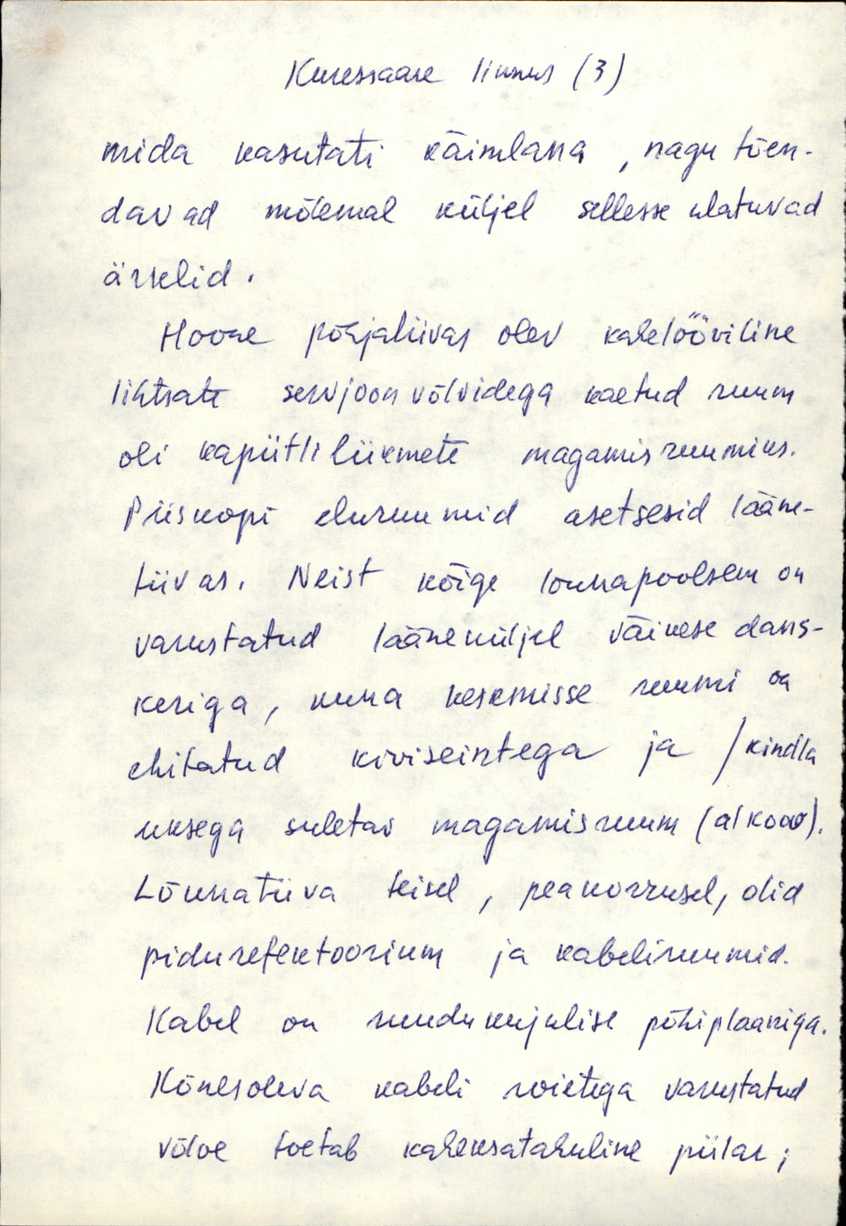 Kuressaare linnus (3)
mida kasutati käimlana, nagu tõen-
davad mõlemal küljel sellesse ulatuvad
ärklid.
Hoone põhjatiivas olev kahelööviline
lihtsate servjoonvõlvidega kaetud ruum
oli kapiitli liikmete magamisruumiks.
Piiskopi eluruumid asetsesid lääne-
tiivas. Neist kõige lõunapoolsem on
varustatud lääneküljel väikese dans-
keriga, kuna keskmisse ruumi on
ehitatud kiviseintega ja /kindla
uksega suletav magamisruum (alkoov).
Lõunatiiva teisel, peakorrusel, olid
pidurefektoorium ja kabeliruumid.
Kabel on ruudukujulise põhiplaaniga.
Kõnesoleva kabeli roietega varustatud
võlve toetab kaheksatahuline piilar;